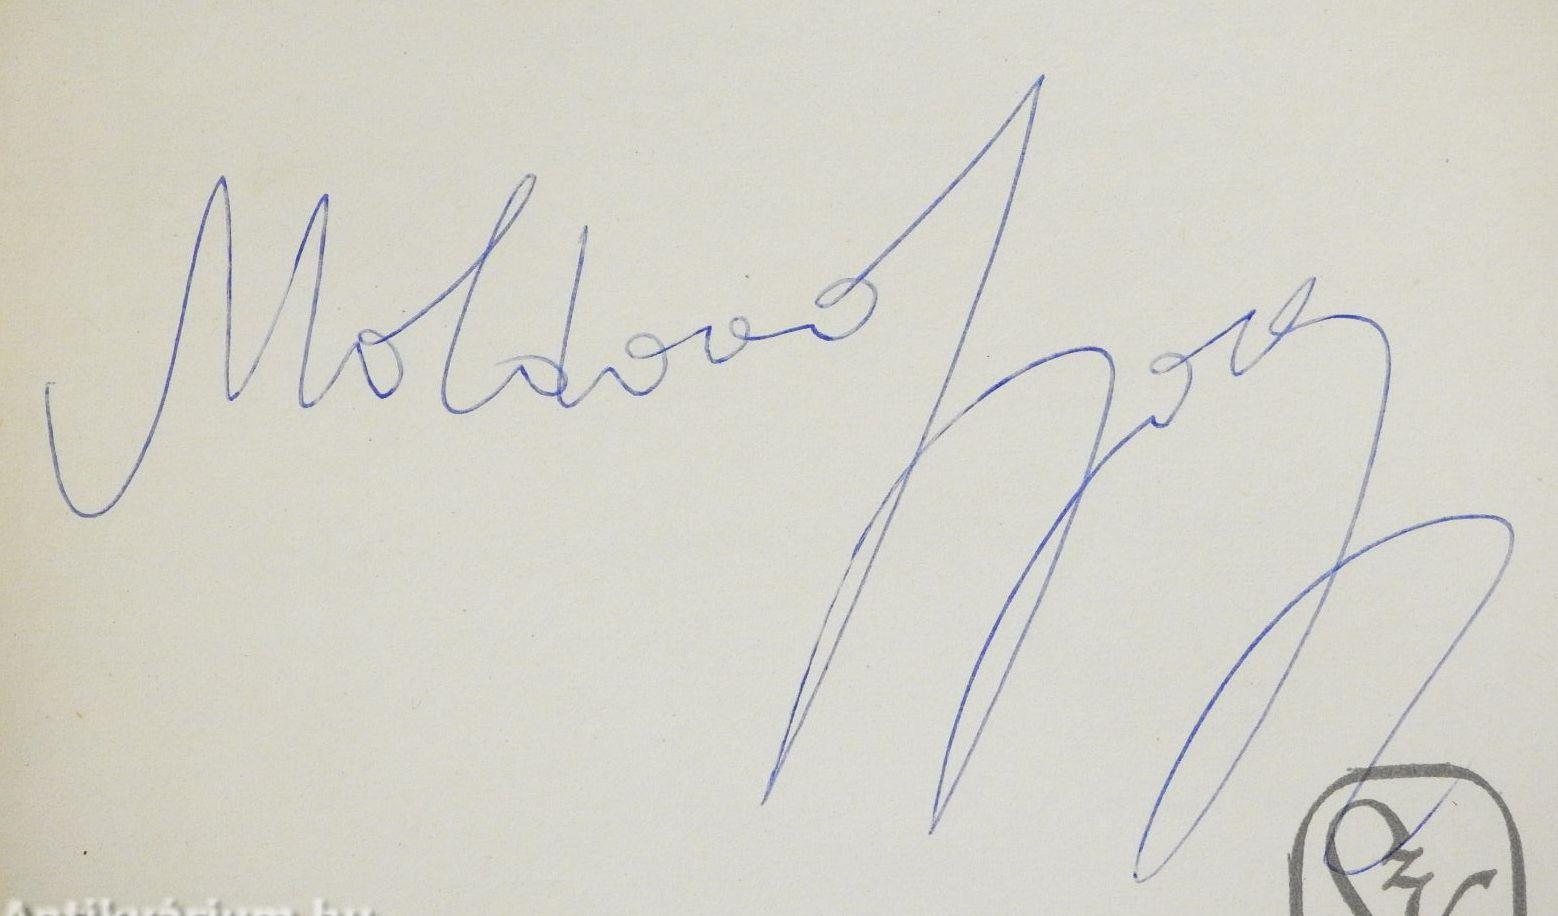 Moldova György
Antikvárium.hu